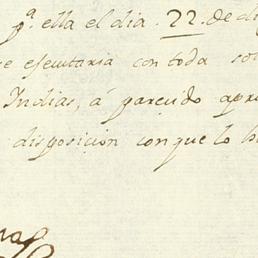 pª ella el dia 22 de di
se esecutaria con toda so
Indias, á parecido apro
disposicion conque lo h